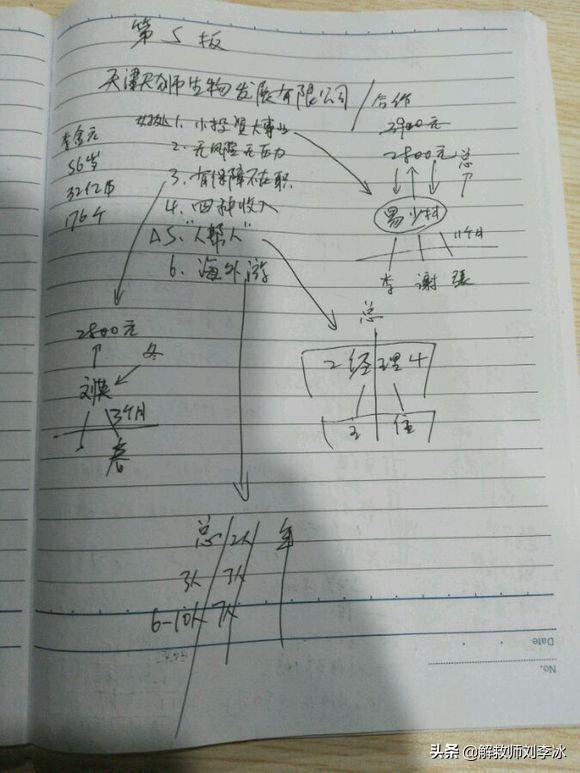 第5板
天津天狮生物发展有限公司/合作
李金元
56岁
32亿币
176个
好处1. 小投资大事业
2. 无风险无压力
3. 有保障不在职
4. 四种收入
△5. "人帮人"
6. 海外游
2900元
2800元 总
易少林
11个月
李 谢 张
2800元
刘英
3个月
春
总
2经理4
主任
总 2人 年
3人 3人
6-10人 7人
Date
No.
头条 @解救师刘李冰